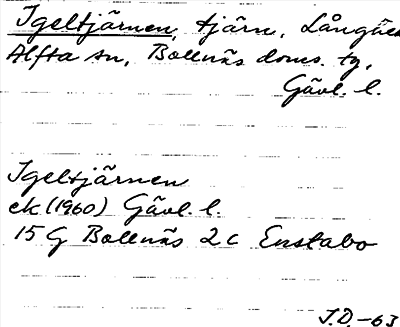 Igeltjärnen, tjärn,
Alfta sn, Bollnäs doms. tg,
Gävl. l.
Igeltjärnen
ek (1960) Gävl. l.
15 G Bollnäs 2 c Enstabo
J.D. -63